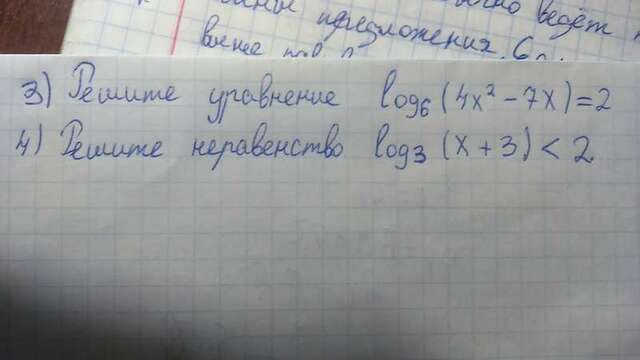 ведёт
предложения.
выше
3) Решите уравнение log₆ (4x² - 7x) = 2
4) Решите неравенство log₃ (x + 3) < 2